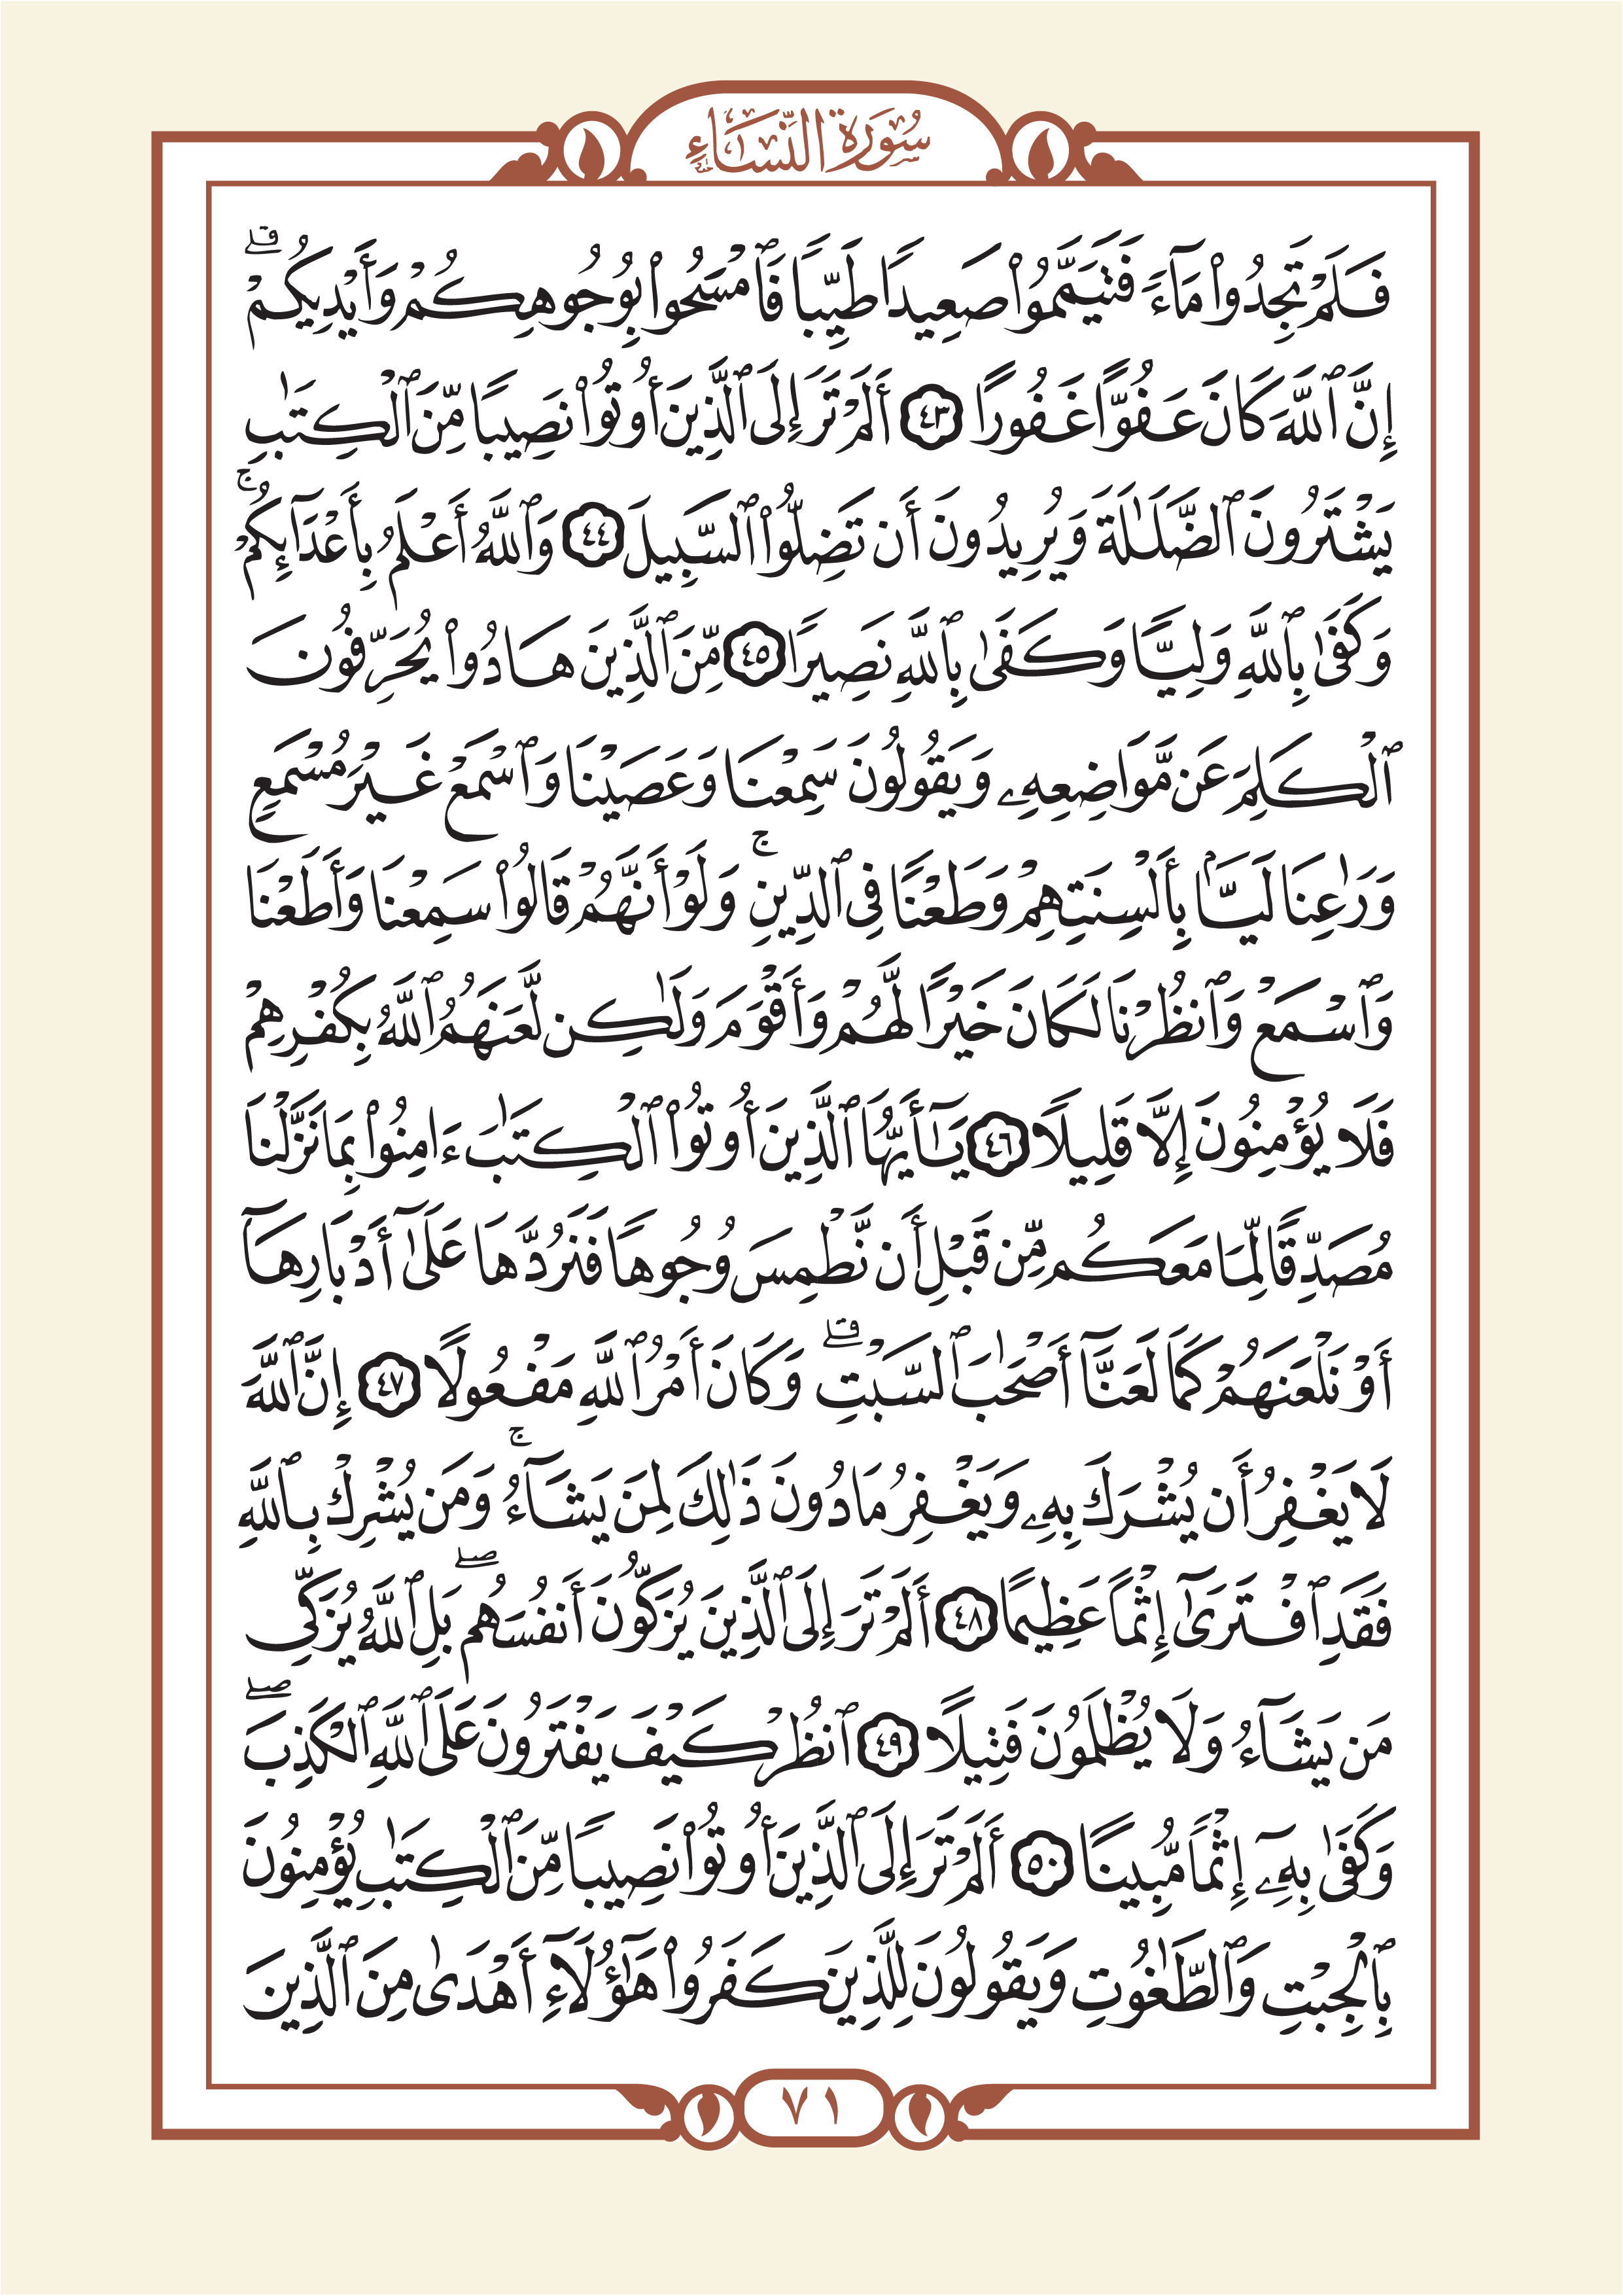 سُورَةُ النِّسَاءِ
فَلَمْ تَجِدُوا۟ مَآءً فَتَيَمَّمُوا۟ صَعِيدًا طَيِّبًا فَٱمْسَحُوا۟ بِوُجُوهِكُمْ وَأَيْدِيكُمْ ۗ
إِنَّ ٱللَّهَ كَانَ عَفُوًّا غَفُورًا ٤٣ أَلَمْ تَرَ إِلَى ٱلَّذِينَ أُوتُوا۟ نَصِيبًا مِّنَ ٱلْكِتَٰبِ
يَشْتَرُونَ ٱلضَّلَٰلَةَ وَيُرِيدُونَ أَن تَضِلُّوا۟ ٱلسَّبِيلَ ٤٤ وَٱللَّهُ أَعْلَمُ بِأَعْدَآئِكُمْ ۚ
وَكَفَىٰ بِٱللَّهِ وَلِيًّا وَكَفَىٰ بِٱللَّهِ نَصِيرًا ٤٥ مِّنَ ٱلَّذِينَ هَادُوا۟ يُحَرِّفُونَ
ٱلْكَلِمَ عَن مَّوَاضِعِهِۦ وَيَقُولُونَ سَمِعْنَا وَعَصَيْنَا وَٱسْمَعْ غَيْرَ مُسْمَعٍ
وَرَٰعِنَا لَيًّۢا بِأَلْسِنَتِهِمْ وَطَعْنًا فِى ٱلدِّينِ ۚ وَلَوْ أَنَّهُمْ قَالُوا۟ سَمِعْنَا وَأَطَعْنَا
وَٱسْمَعْ وَٱنظُرْنَا لَكَانَ خَيْرًا لَّهُمْ وَأَقْوَمَ وَلَٰكِن لَّعَنَهُمُ ٱللَّهُ بِكُفْرِهِمْ
فَلَا يُؤْمِنُونَ إِلَّا قَلِيلًا ٤٦ يَٰٓأَيُّهَا ٱلَّذِينَ أُوتُوا۟ ٱلْكِتَٰبَ ءَامِنُوا۟ بِمَا نَزَّلْنَا
مُصَدِّقًا لِّمَا مَعَكُم مِّن قَبْلِ أَن نَّطْمِسَ وُجُوهًا فَنَرُدَّهَا عَلَىٰٓ أَدْبَارِهَآ
أَوْ نَلْعَنَهُمْ كَمَا لَعَنَّآ أَصْحَٰبَ ٱلسَّبْتِ ۗ وَكَانَ أَمْرُ ٱللَّهِ مَفْعُولًا ٤٧ إِنَّ ٱللَّهَ
لَا يَغْفِرُ أَن يُشْرَكَ بِهِۦ وَيَغْفِرُ مَا دُونَ ذَٰلِكَ لِمَن يَشَآءُ ۚ وَمَن يُشْرِكْ بِٱللَّهِ
فَقَدِ ٱفْتَرَىٰٓ إِثْمًا عَظِيمًا ٤٨ أَلَمْ تَرَ إِلَى ٱلَّذِينَ يُزَكُّونَ أَنفُسَهُم ۖ بَلِ ٱللَّهُ يُزَكِّى
مَن يَشَآءُ وَلَا يُظْلَمُونَ فَتِيلًا ٤٩ ٱنظُرْ كَيْفَ يَفْتَرُونَ عَلَى ٱللَّهِ ٱلْكَذِبَ ۖ
وَكَفَىٰ بِهِۦٓ إِثْمًا مُّبِينًا ٥٠ أَلَمْ تَرَ إِلَى ٱلَّذِينَ أُوتُوا۟ نَصِيبًا مِّنَ ٱلْكِتَٰبِ يُؤْمِنُونَ
بِٱلْجِبْتِ وَٱلطَّٰغُوتِ وَيَقُولُونَ لِلَّذِينَ كَفَرُوا۟ هَٰٓؤُلَآءِ أَهْدَىٰ مِنَ ٱلَّذِينَ
٧١